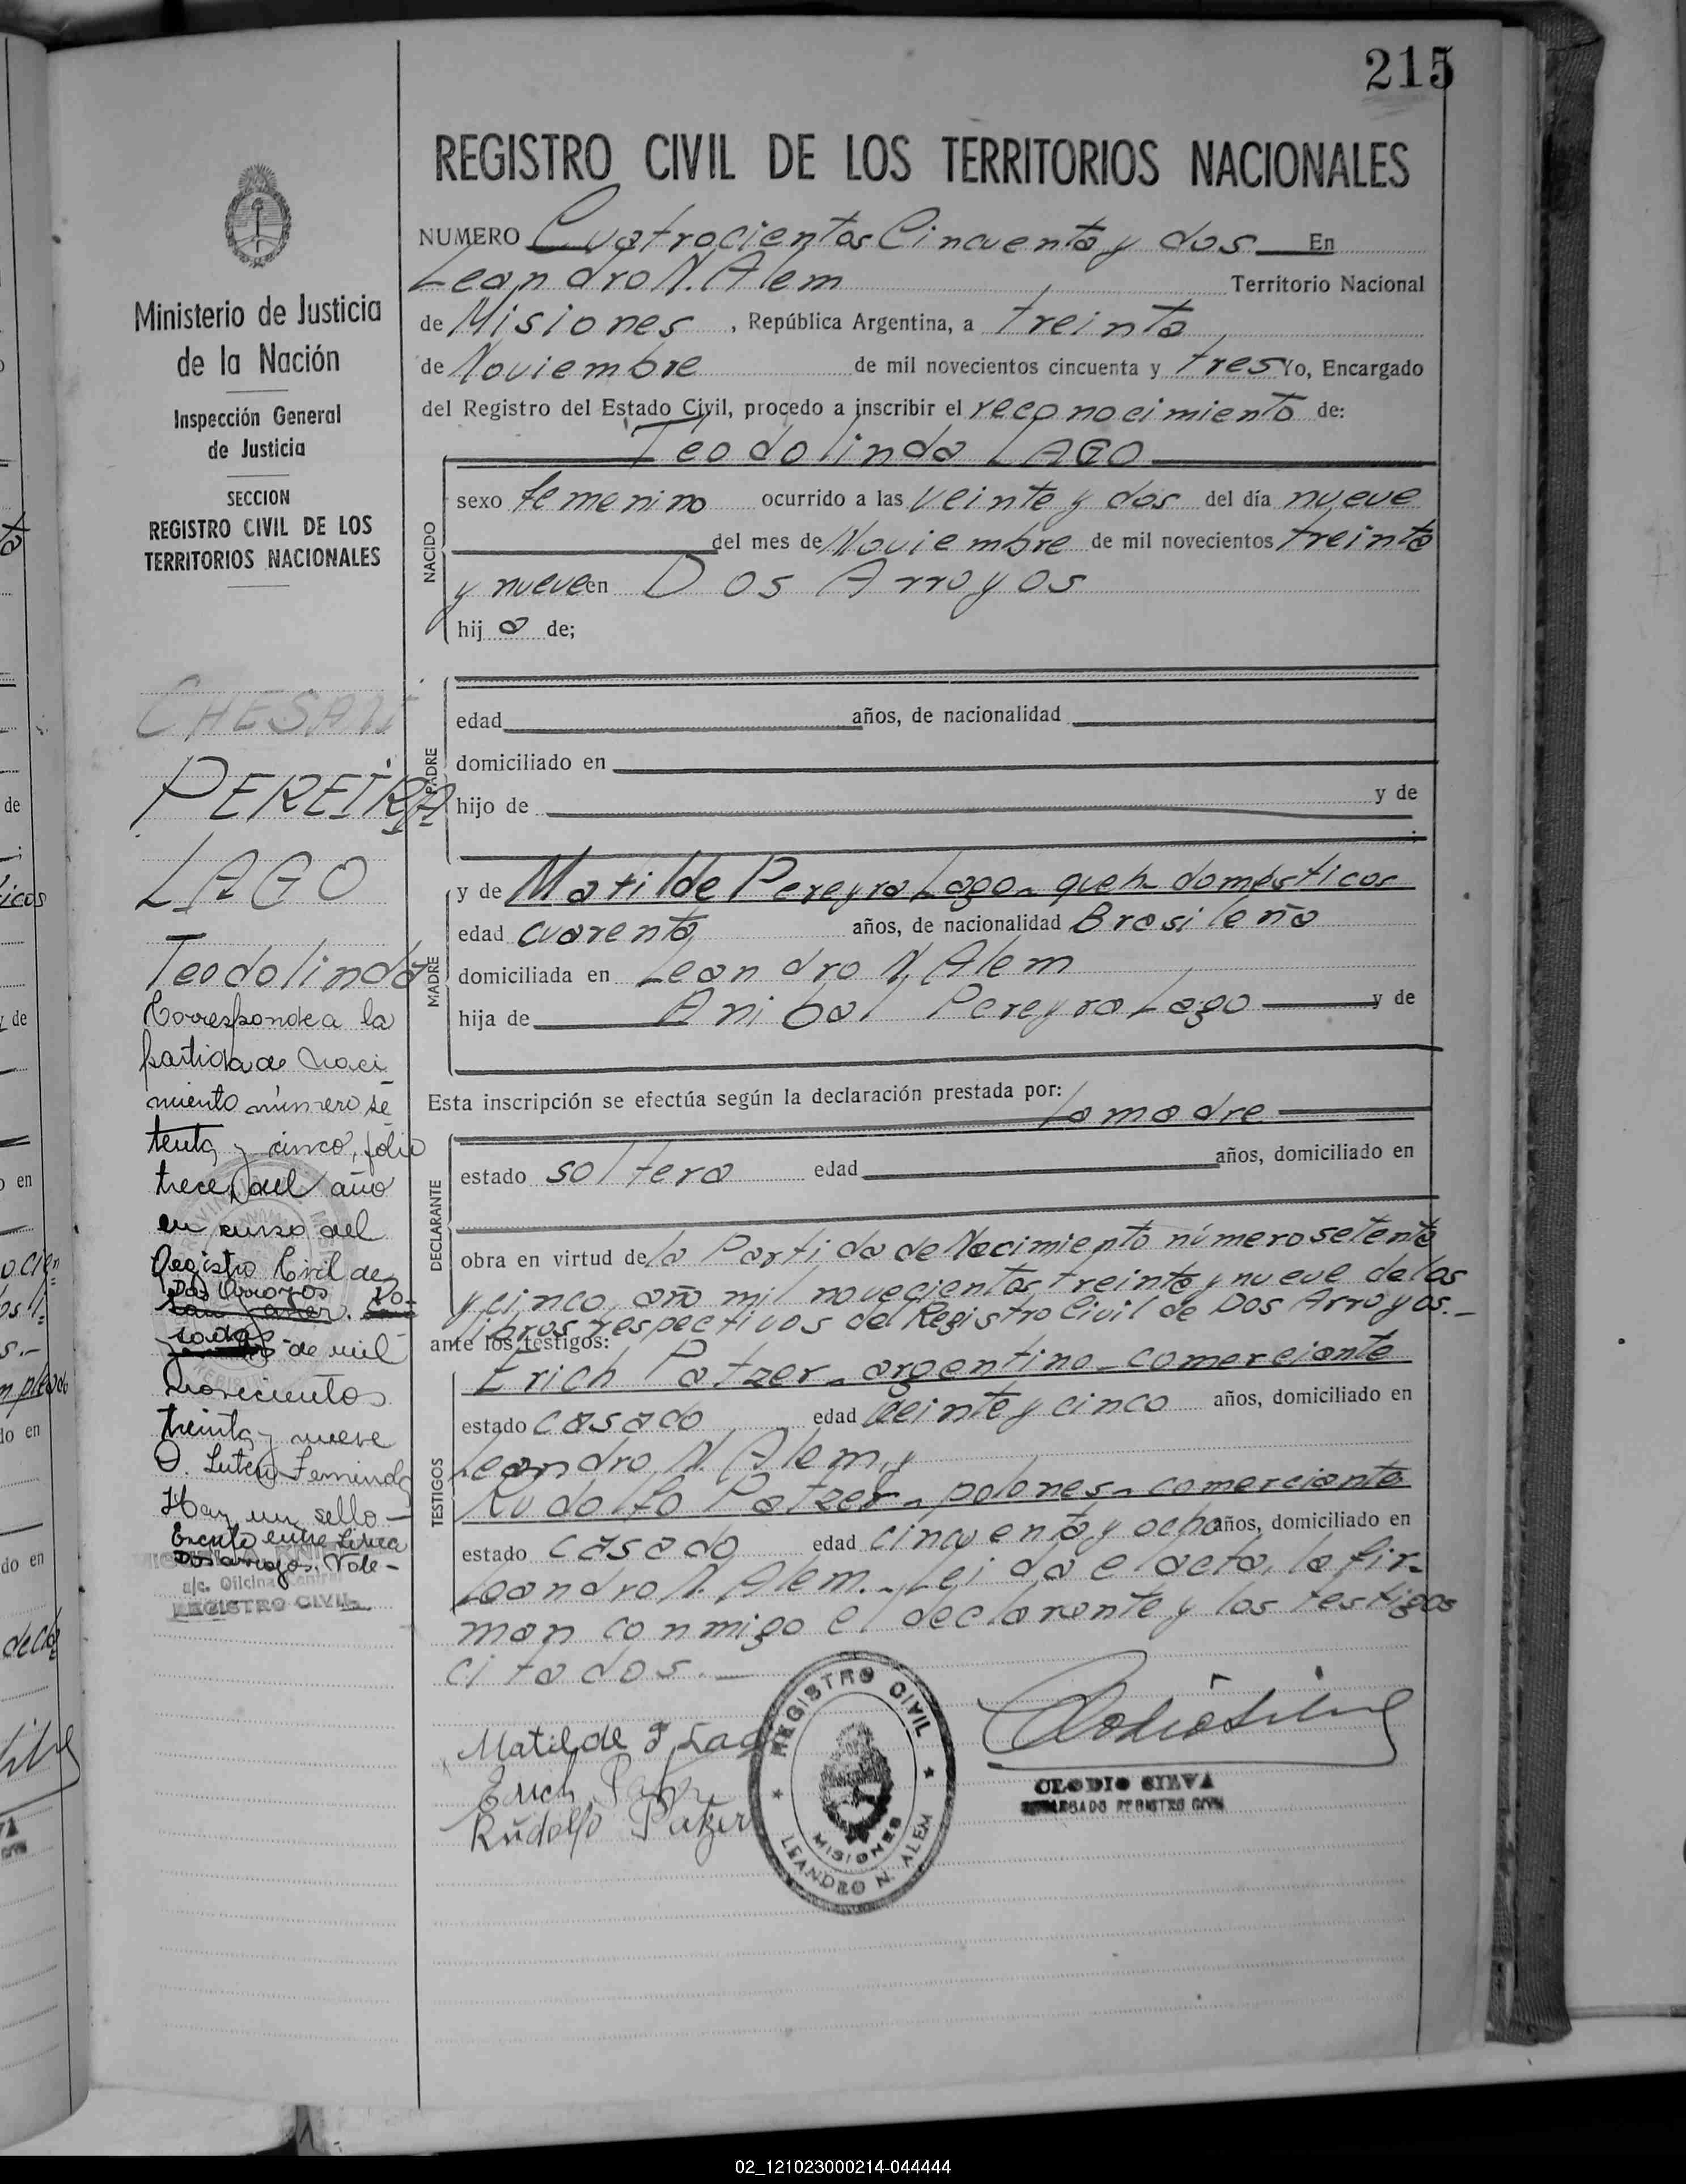 215
REGISTRO CIVIL DE LOS TERRITORIOS NACIONALES
NUMERO Cuatrocientos Cincuenta y dos En
Leandro N. Alem Territorio Nacional
de Misiones, República Argentina, a treinta
de Noviembre de mil novecientos cincuenta y tres Yo, Encargado
del Registro del Estado Civil, procedo a inscribir el reconocimiento de:
Teodolinda LAGO
NACIDO
sexo femenino ocurrido a las veinte y dos del día nueve
del mes de Noviembre de mil novecientos treinta
y nueve en Dos Arroyos
hij a de;
PADRE
edad años, de nacionalidad
domiciliado en
hijo de y de
MADRE
y de Matilde Pereyra Lago - queh- domésticos
edad cuarenta años, de nacionalidad Brasileña
domiciliada en Leandro N. Alem
hija de Anibal Pereyra Lago y de
Esta inscripción se efectúa según la declaración prestada por:
la madre
DECLARANTE
estado soltera edad años, domiciliado en
obra en virtud de la Partida de Nacimiento número setenta
y cinco, año mil novecientos treinta y nueve de los
libros respectivos del Registro Civil de Dos Arroyos.-
ante los testigos:
TESTIGOS
Erich Patzer - argentino - comerciante
estado casado edad veinte y cinco años, domiciliado en
Leandro N. Alem y
Rudolfo Patzer - polones - comerciante
estado casado edad cincuenta y ocho años, domiciliado en
Leandro N. Alem.- Leida el acta, la fir-
man conmigo el declarante y los testigos
citados.-
Matilde P. Lago
Erich Patzer
Rudolfo Patzer
REGISTRO CIVIL
MISIONES
LEANDRO N. ALEM
CLODIO SILVA
ENCARGADO REGISTRO CIVIL
Ministerio de Justicia
de la Nación
Inspección General
de Justicia
SECCION
REGISTRO CIVIL DE LOS
TERRITORIOS NACIONALES
PEREIRA
LAGO
Teodolinda
Corresponde a la
partida de naci
miento número se
tenta y cinco, folio
trece, del año
en curso del
Registro Civil de
Dos Arroyos
de mil
novecientos
treinta y nueve
Hay un sello -
Escrito entre linea
Dos arroyos. Vale -
a/c. Oficina Central
REGISTRO CIVIL
02_121023000214-044444